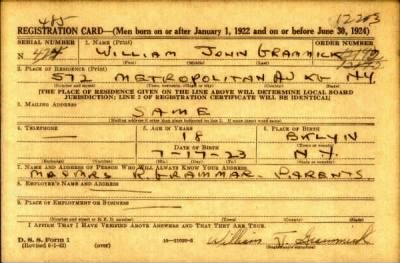 485
12203
REGISTRATION CARD—(Men born on or after January 1, 1922 and on or before June 30, 1924)
SERIAL NUMBER 1. NAME (Print) ORDER NUMBER
N 494 WILLIAM JOHN GRAMMICK
(First) (Middle) (Last)
2. PLACE OF RESIDENCE (Print)
572 METROPOLITAN AV KG N.Y.
(Number and street) (Town, township, village or city) (County) (State)
[THE PLACE OF RESIDENCE GIVEN ON THE LINE ABOVE WILL DETERMINE LOCAL BOARD
JURISDICTION; LINE 2 OF REGISTRATION CERTIFICATE WILL BE IDENTICAL]
3. MAILING ADDRESS
SAME
4. TELEPHONE 5. AGE IN YEARS 6. PLACE OF BIRTH
18 BKLYN
DATE OF BIRTH
7-17-23 N.Y.
(Mo.) (Day) (Yr.) (State or country)
7. NAME AND ADDRESS OF PERSON WHO WILL ALWAYS KNOW YOUR ADDRESS
PARENTS
8. EMPLOYER'S NAME AND ADDRESS
9. PLACE OF EMPLOYMENT OR BUSINESS
(Number and street or R. F. D. number) (Town) (County) (State)
I AFFIRM THAT I HAVE VERIFIED ABOVE ANSWERS AND THAT THEY ARE TRUE.
D. S. S. Form 1
William J. Grammick